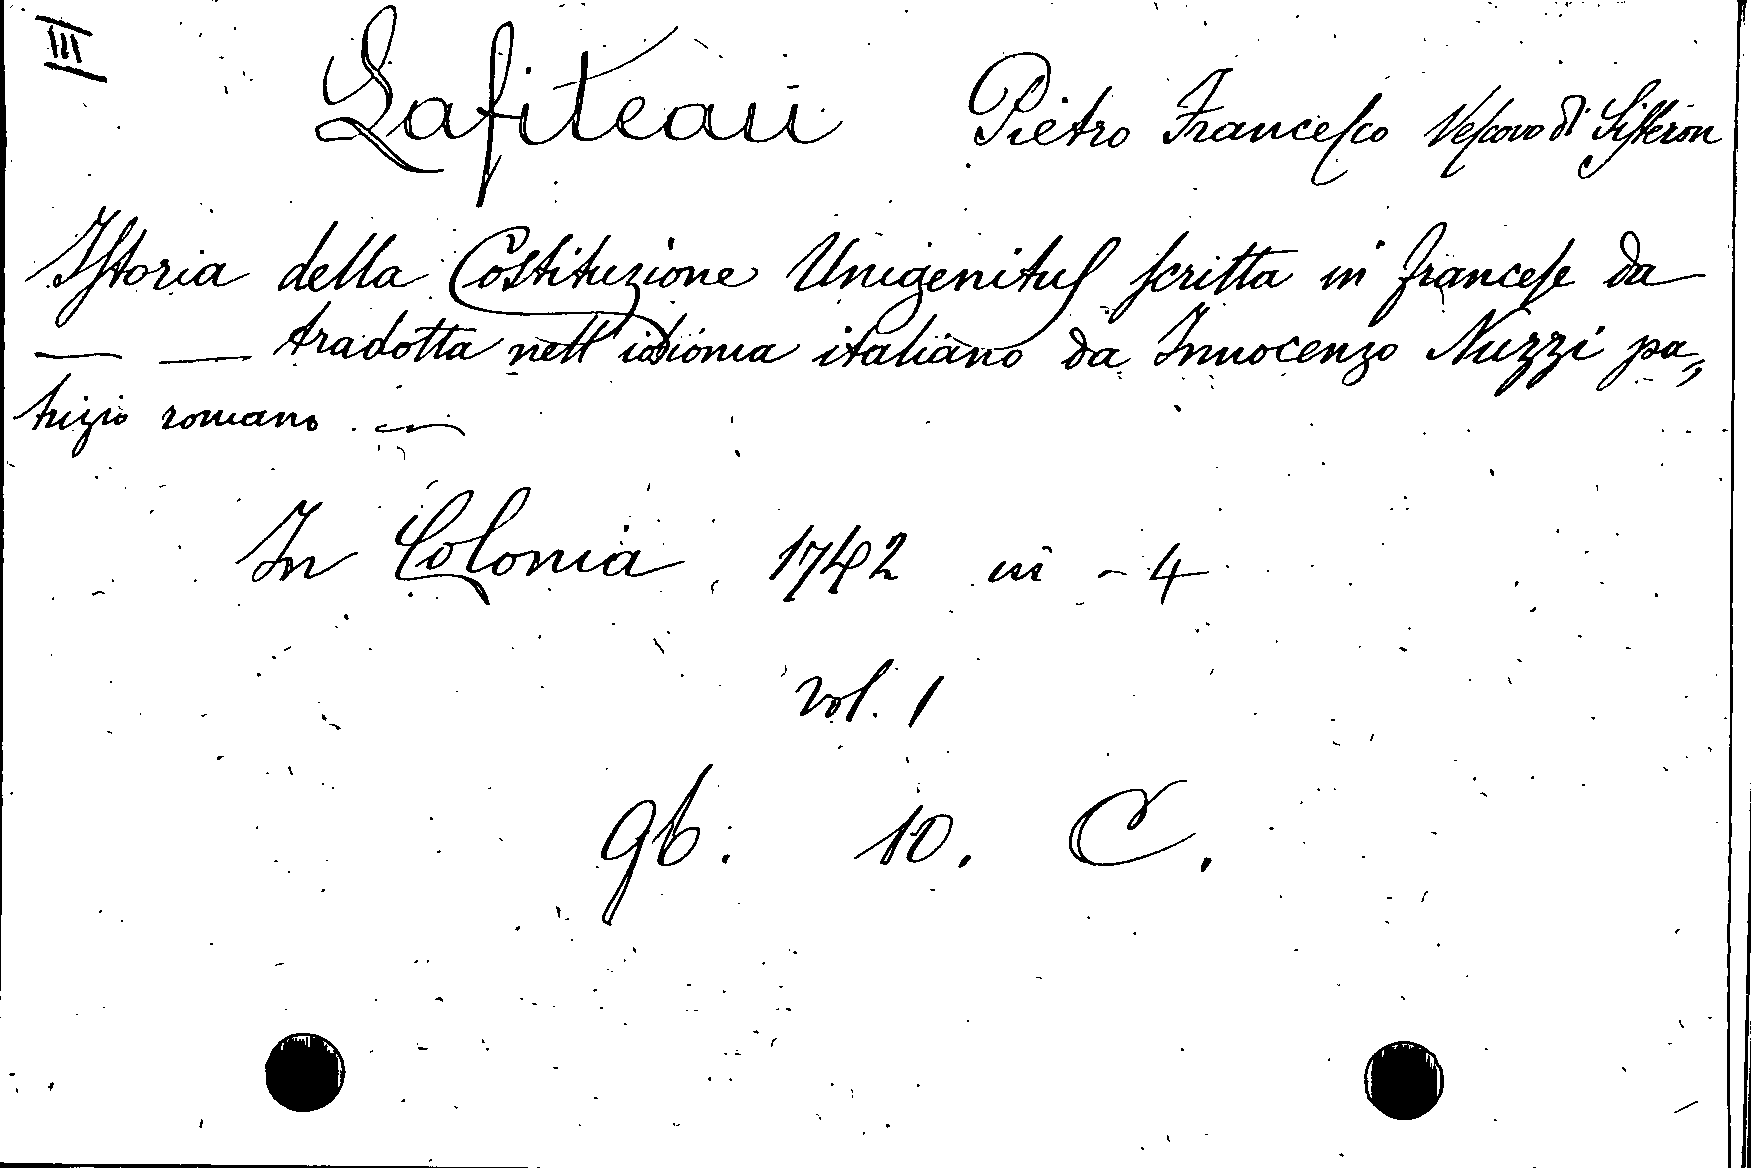 III
Lafiteau Pietro Francesco Vescovo di Sisteron
Istoria della Costituzione Unigenitus scritta in francese da
— — tradotta nell'idioma italiano da Innocenzo Nuzzi pa„
trizio romano.
In Colonia, 1742 in - 4
Vol. 1
96. 10. C.